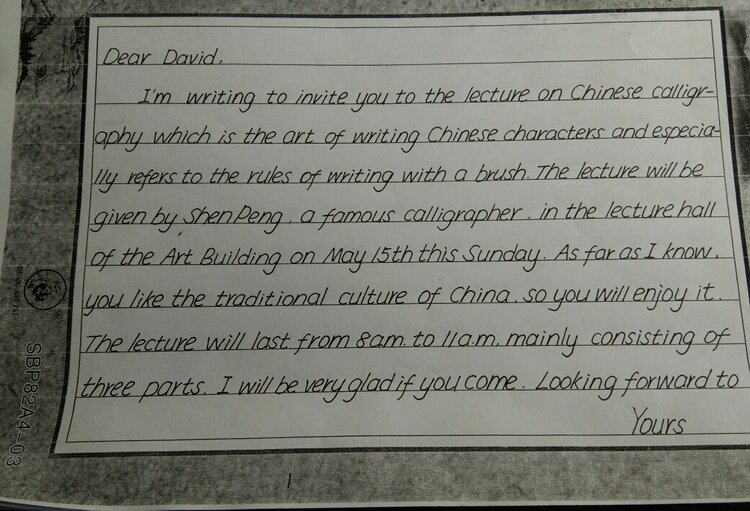 Dear David,
I'm writing to invite you to the lecture on Chinese calligr-
aphy which is the art of writing Chinese characters and especia-
lly refers to the rules of writing with a brush. The lecture will be
given by Shen Peng, a famous calligrapher, in the lecture hall
of the Art Building on May 15th this Sunday. As far as I know,
you like the traditional culture of China, so you will enjoy it.
The lecture will last from 8am. to 11a.m, mainly consisting of
three parts. I will be very glad if you come. Looking forward to
Yours
SBP82A4-03